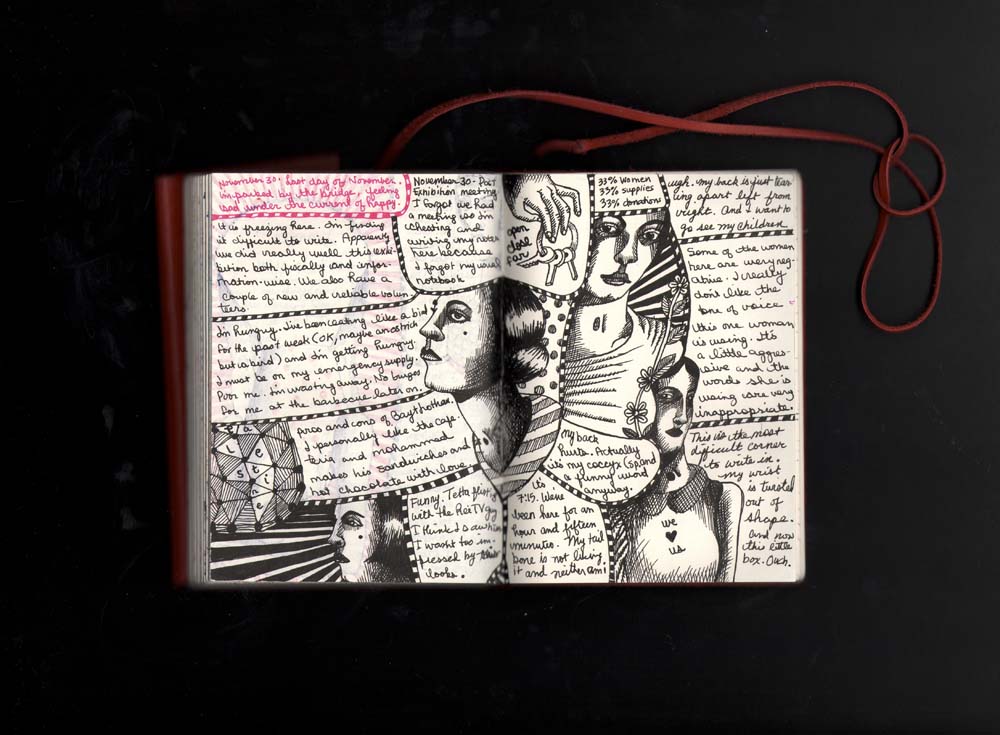 November 30. Last day of November.
I'm parked by the bridge, feeling
sad under the current of happy.
It is freezing here. I'm finding
it difficult to write. Apparently
we did really well this exhi-
bition both fiscally and infor-
mation-wise. We also have a
couple of new and reliable volun-
teers.
I'm hungry. I've been eating like a bird
for the past week (OK, maybe an ostrich
but a bird) and I'm getting hungry.
I must be on my emergency supply.
Poor me. I'm wasting away. No burger
for me at the barbecue later on.
pros and cons of
I personally like the cafe-
teria and mohammad
makes his sandwiches and
hot chocolate with love.
Palestine
November 30 - Post
Exhibition meeting
I forgot we had
a meeting so I'm
cheating and
writing my notes
here because
I forgot my usual
notebook
Funny. Tetta flirting
with the ReiTV guy
I think I saw him
I wasn't too im-
pressed by his
looks.
open
close
far
33% women
33% supplies
33% donations
ugh. my back is just tear-
ing apart left from
right. And I want to
go see my children.
Some of the women
here are very neg-
ative. I really
don't like the
tone of voice
this one woman
is using. It's
a little aggres-
sive and the
words she is
using are very
inappropriate.
my back
hurts. Actually
it's my coccyx (spand
a funny word
anyway.
It's
7:15. We've
been here for an
hour and fifteen
minutes. My tail
bone is not liking
it and neither am I
we
♥
us
This is the most
difficult corner
to write in.
my wrist
is twisted
out of
shape.
And now
this little
box. Ouch.